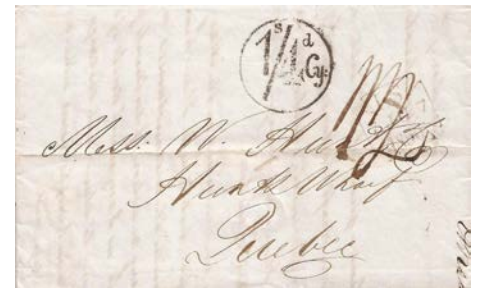 1s/4d Cy.
Mess. W. Hunt &
Hunts Wharf
Quebec